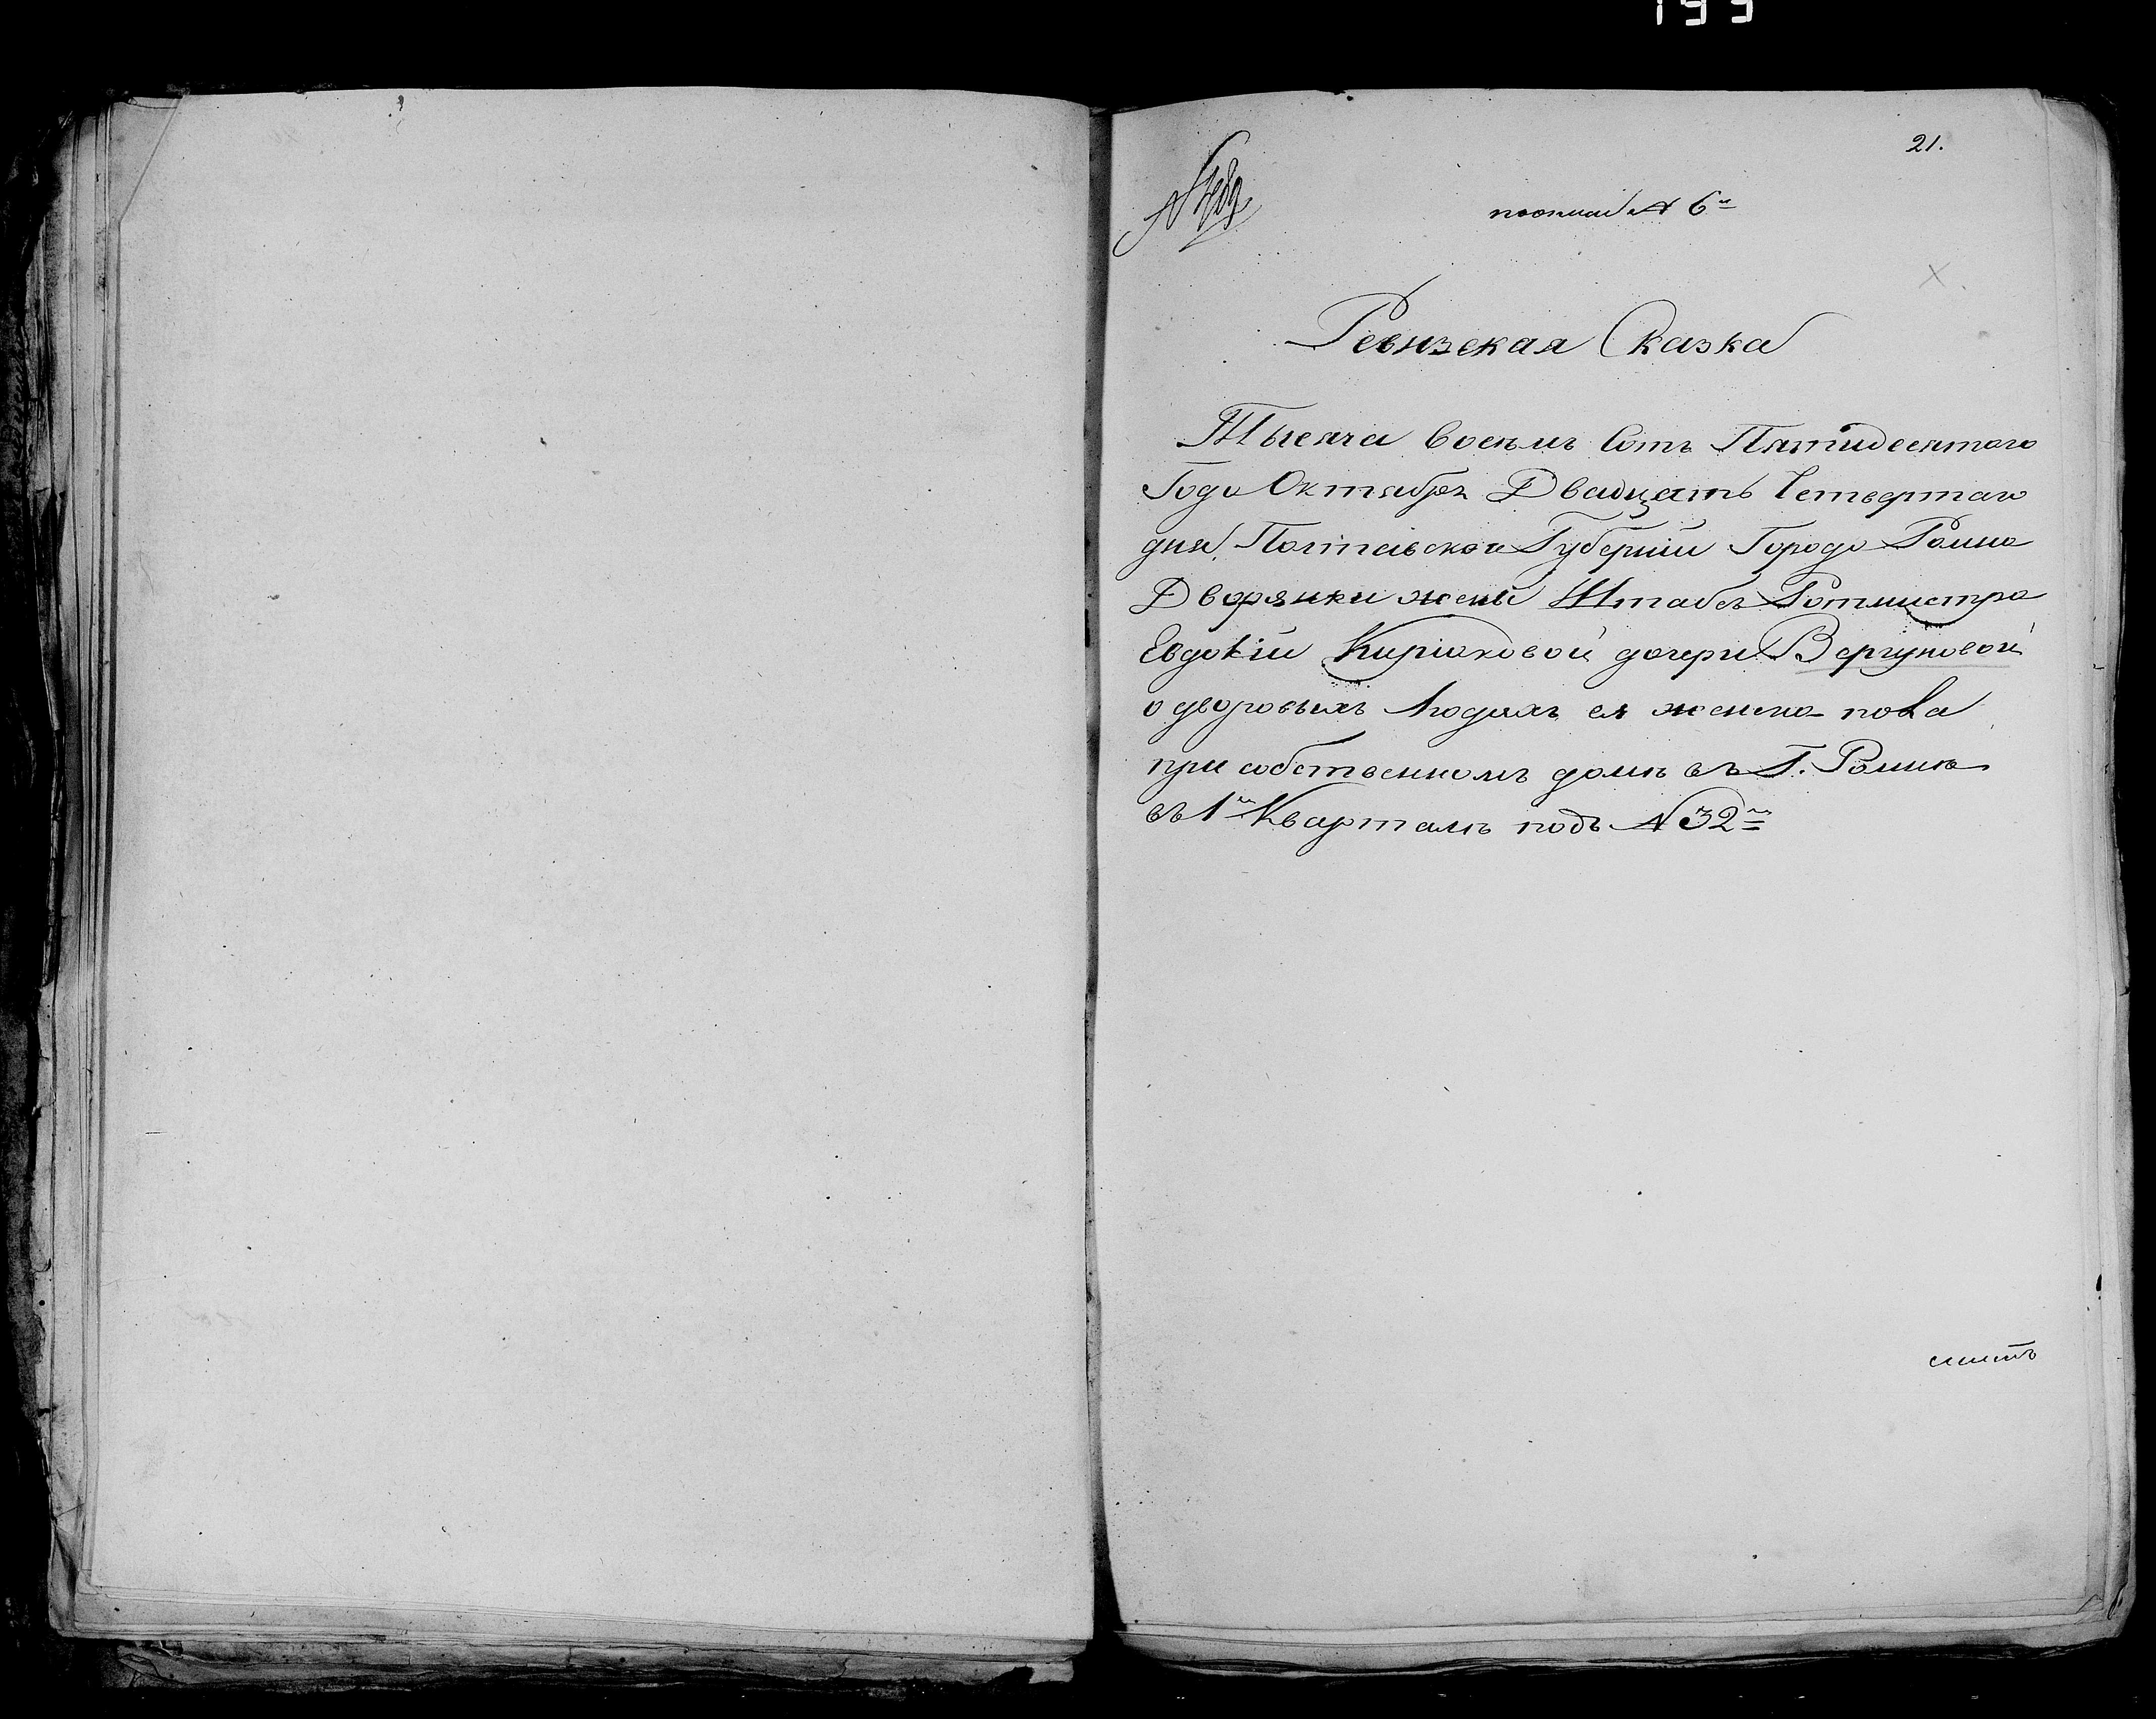 199
21.
№ 6й
Ревизская Сказка
Тысяча восемъ Сотъ Пятидесятаго
Года Октября Двадцать Четвертаго
дня, Полтавской Губерніи Города Ромна
Дворянки жены Штабсъ Ротмистра
Евдокіи Киріаковой дочери Вергуновой
о дворовыхъ Людяхъ ея женска пола
при собственномъ домѣ въ Г. Ромнѣ
въ 1м Кварталѣ подъ №32м